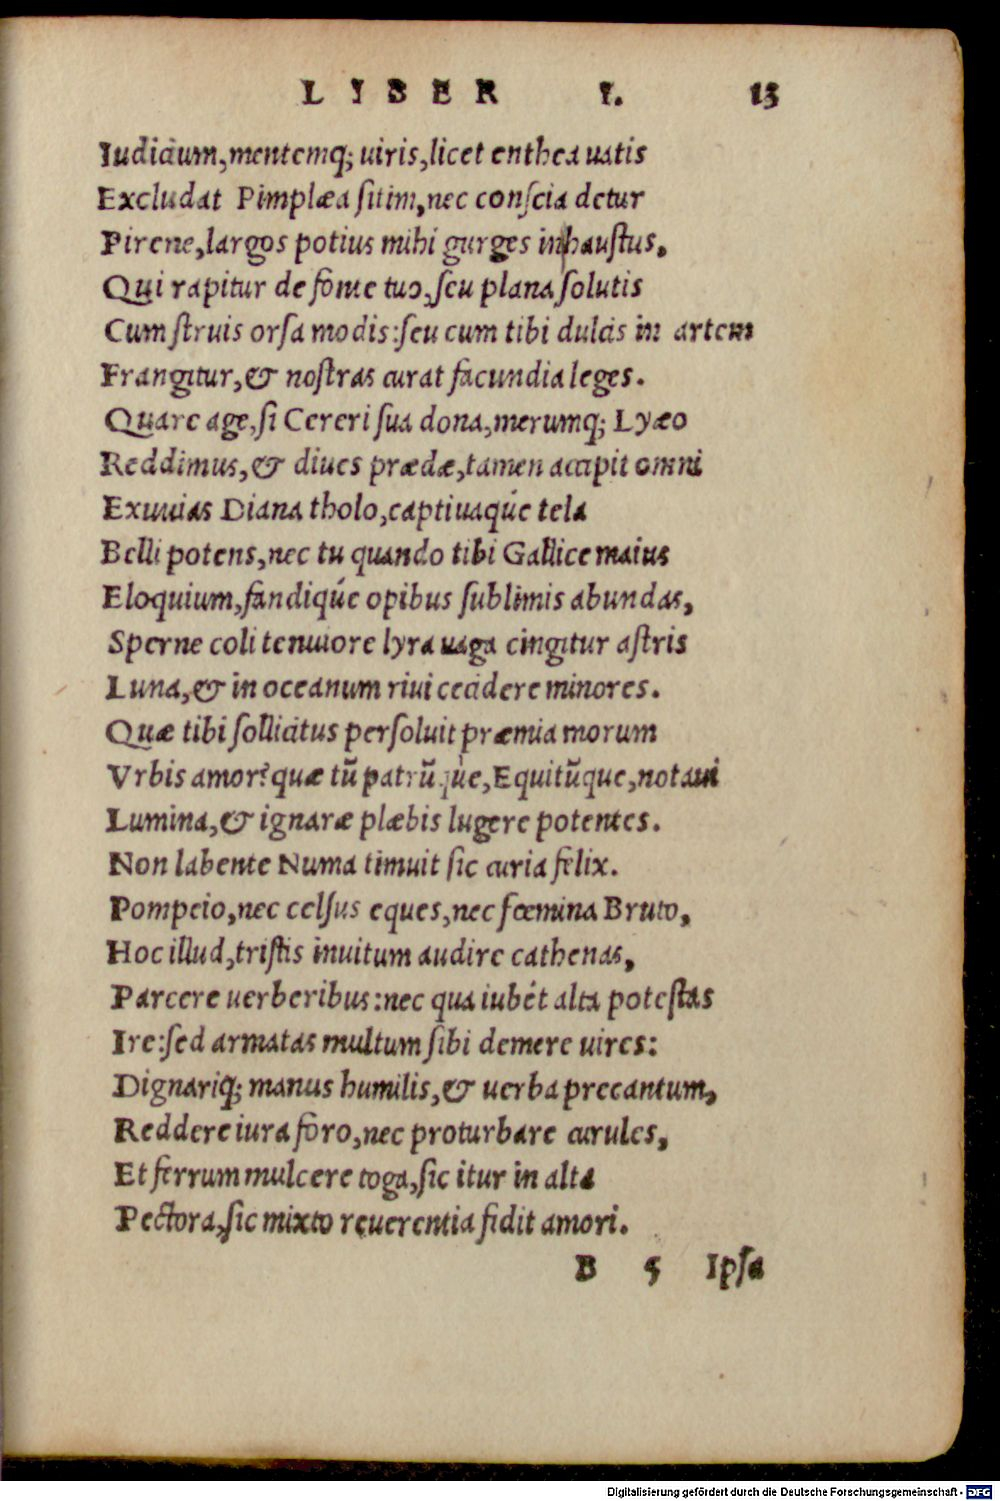 LIBER I. 13
Iudicium,mentemq; uiris,licet enthea uatis
Excludat Pimplæa sitim,nec conscia detur
Pirene,largos potius mihi gurges inhaustus,
Qui rapitur de fonte tuo,seu plana solutis
Cum struis orsa modis:seu cum tibi dulcis in artem
Frangitur,& nostras curat facundia leges.
Quare age,si Cereri sua dona,merumq; Lyæo
Reddimus,& diues prædæ,tamen accipit omni
Exuuias Diana tholo,captiuaqúe tela
Belli potens,nec tu quando tibi Gallice maius
Eloquium,fandiqúe opibus sublimis abundas,
Sperne coli tenuiore lyra uaga cingitur astris
Luna,& in oceanum riui cecidere minores.
Quæ tibi sollicitus persoluit præmia morum
Vrbis amor?quæ tũ patrũ qùe,Equitũque,notaui
Lumina,& ignaræ plæbis lugere potentes.
Non labente Numa timuit sic curia felix.
Pompeio,nec celsus eques,nec fœmina Bruto,
Hoc illud,tristis inuitum audire cathenas,
Parcere uerberibus:nec qua iubét alta potestas
Ire:sed armatas multum sibi demere uires:
Dignariq; manus humilis,& uerba precantum,
Reddere iura foro,nec proturbare curules,
Et ferrum mulcere toga,sic itur in alta
Pectora,sic mixto reuerentia fidit amori.
B 5 Ipsa
Digitalisierung gefördert durch die Deutsche Forschungsgemeinschaft - DFG